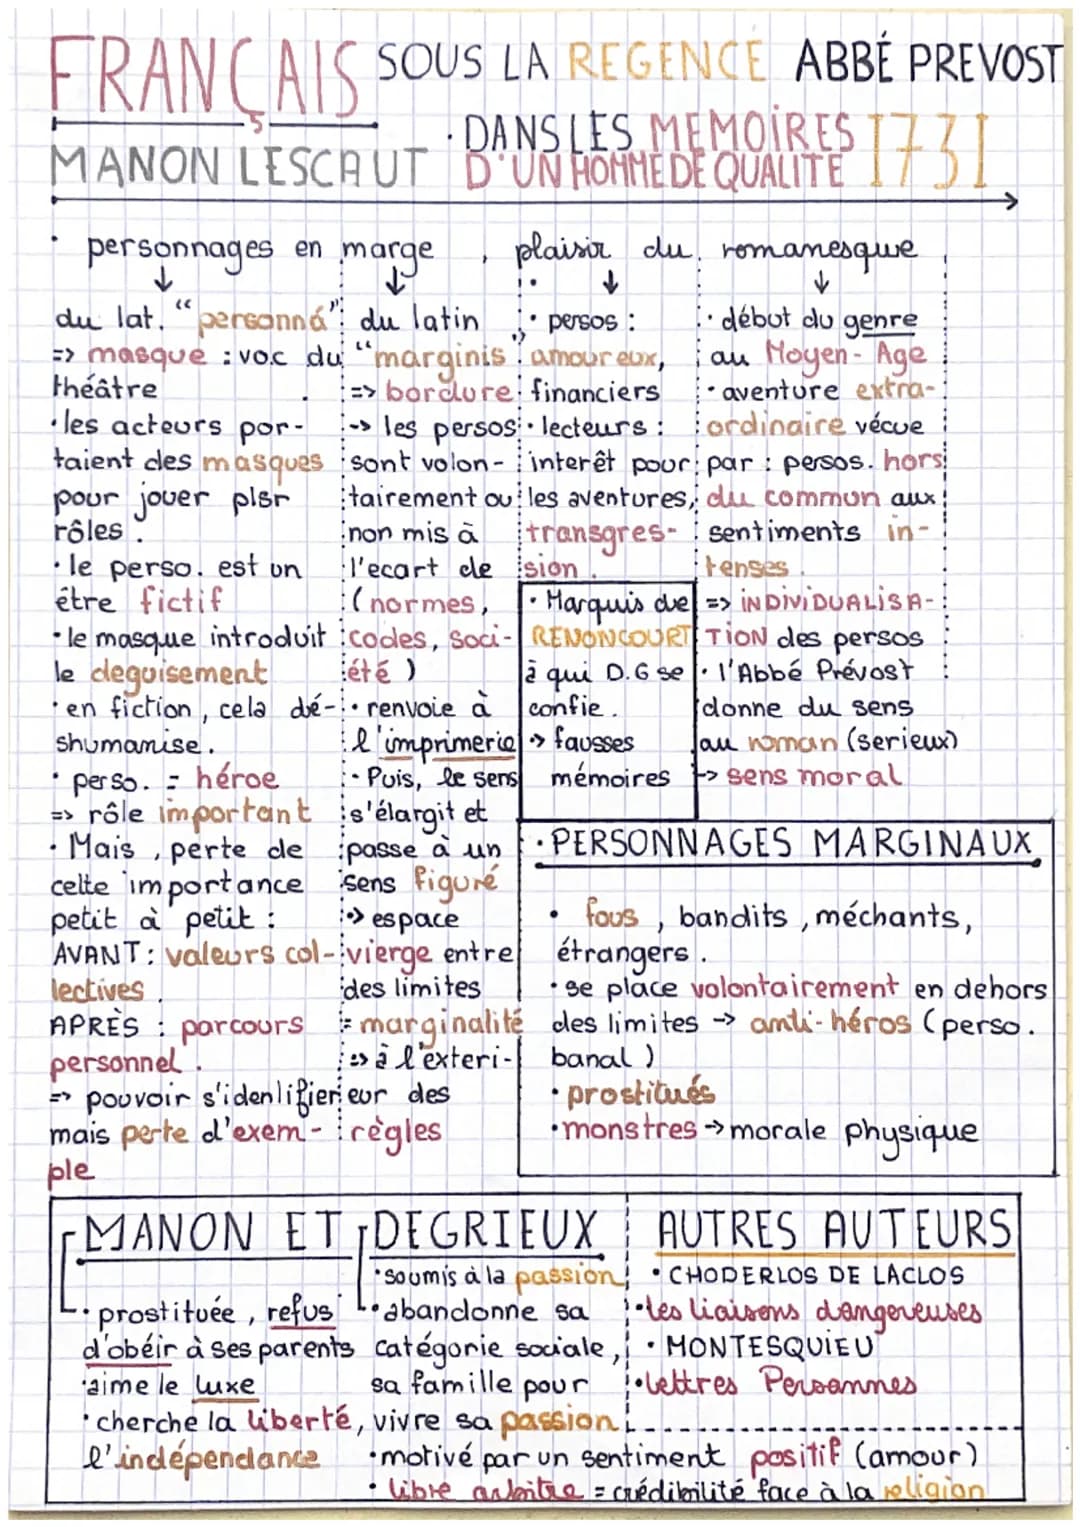 FRANÇAIS SOUS LA REGENCE ABBÉ PREVOST
MANON LESCAUT
· DANS LES MEMOIRES
D'UN HOMME DE QUALITE
1731
· personnages en marge, plaisir du romanesque
↓ ↓ ↓ ↓
du lat. "personná"
=> masque : voc du
théâtre
· les acteurs por-
taient des masques
pour jouer plsr
rôles.
· le perso. est un
être fictif
· le masque introduit
le deguisement
· en fiction, cela dé-
shumanise.
· perso. = héroe
=> rôle important
· Mais, perte de
cette importance
petit à petit :
AVANT : valeurs col-
lectives.
APRÈS : parcours
personnel.
=> pouvoir s'identifier
mais perte d'exem-
ple
du latin
"marginis"
=> bordure
-> les persos
sont volon-
tairement ou
non mis à
l'ecart de
(normes,
codes, soci-
été)
· renvoie à
l'imprimerie
· Puis, le sens
s'élargit et
passe à un
sens figuré
-> espace
vierge entre
des limites
= marginalité
=> à l'exteri-
eur des
règles
· persos :
amoureux,
financiers
· lecteurs :
interêt pour
les aventures,
transgres-
sion.
· Marquis de
RENONCOURT
à qui D.G se
confie.
-> fausses
mémoires
· début du genre
au Moyen-Age
· aventure extra-
ordinaire vécue
par : persos. hors
du commun aux
sentiments in-
tenses.
=> INDIVIDUALISA-
TION des persos
· l'Abbé Prévost
donne du sens
au roman (serieux)
-> sens moral
· PERSONNAGES MARGINAUX
· fous, bandits, méchants,
étrangers.
· se place volontairement en dehors
des limites -> anti-héros (perso.
banal)
· prostitués
· monstres -> morale physique
MANON ET DEGRIEUX
· prostituée, refus
d'obéir à ses parents
· aime le luxe
· cherche la liberté,
l'indépendance
· soumis à la passion
· abandonne sa
catégorie sociale,
sa famille pour
vivre sa passion
· motivé par un sentiment positif (amour)
· libre arbitre = crédibilité face à la religion
AUTRES AUTEURS
· CHODERLOS DE LACLOS
· les liaisons dangereuses
· MONTESQUIEU
· lettres Persannes